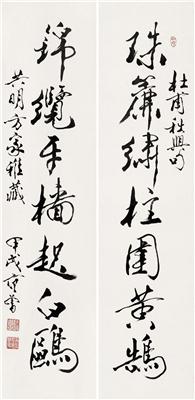 杜甫秋興句
珠簾繡柱圍黃鵠
錦纜牙檣起白鷗
共明方家雅藏
甲戌范曾